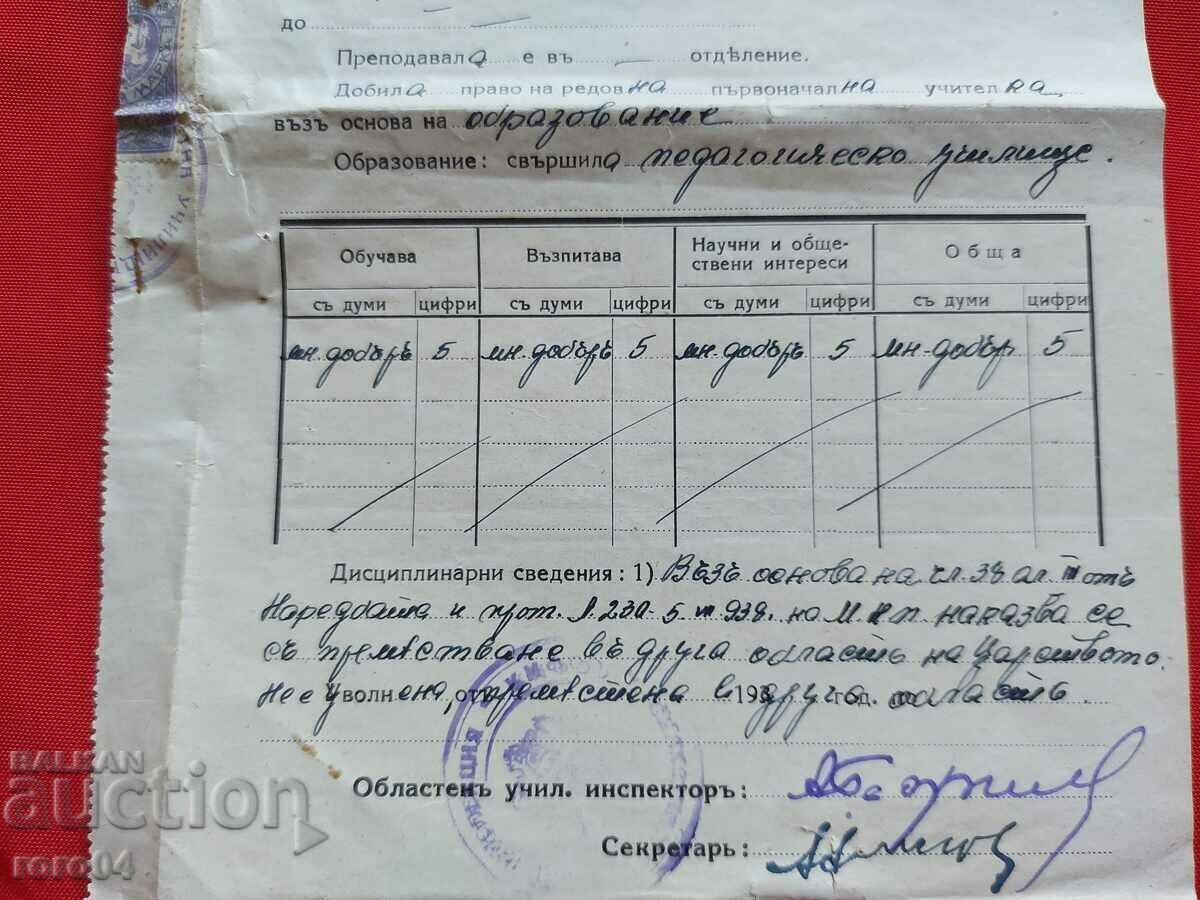 до
Преподавала е въ — отдѣление.
Добила право на редовна първоначална учителка
възъ основа на образование
Образование: свършила педагогическо училище.
Обучава Възпитава Научни и обще-
ствени интереси Обща
съ думи цифри съ думи цифри съ думи цифри съ думи цифри
мн. добъръ 5 мн. добъръ 5 мн. добъръ 5 мн. добър 5
Дисциплинарни сведения: 1) Възъ основа на чл. 38 ал. III отъ
Наредбата и прот. 230 - 5 VII 938. на М.н.п. наказва се
съ премѣстване въ друга область на Царството.
Не е уволнена, от премѣстена в 193 друга год. область
Областенъ учил. инспекторъ:
Секретарь:
BALKAN
auction
roro04